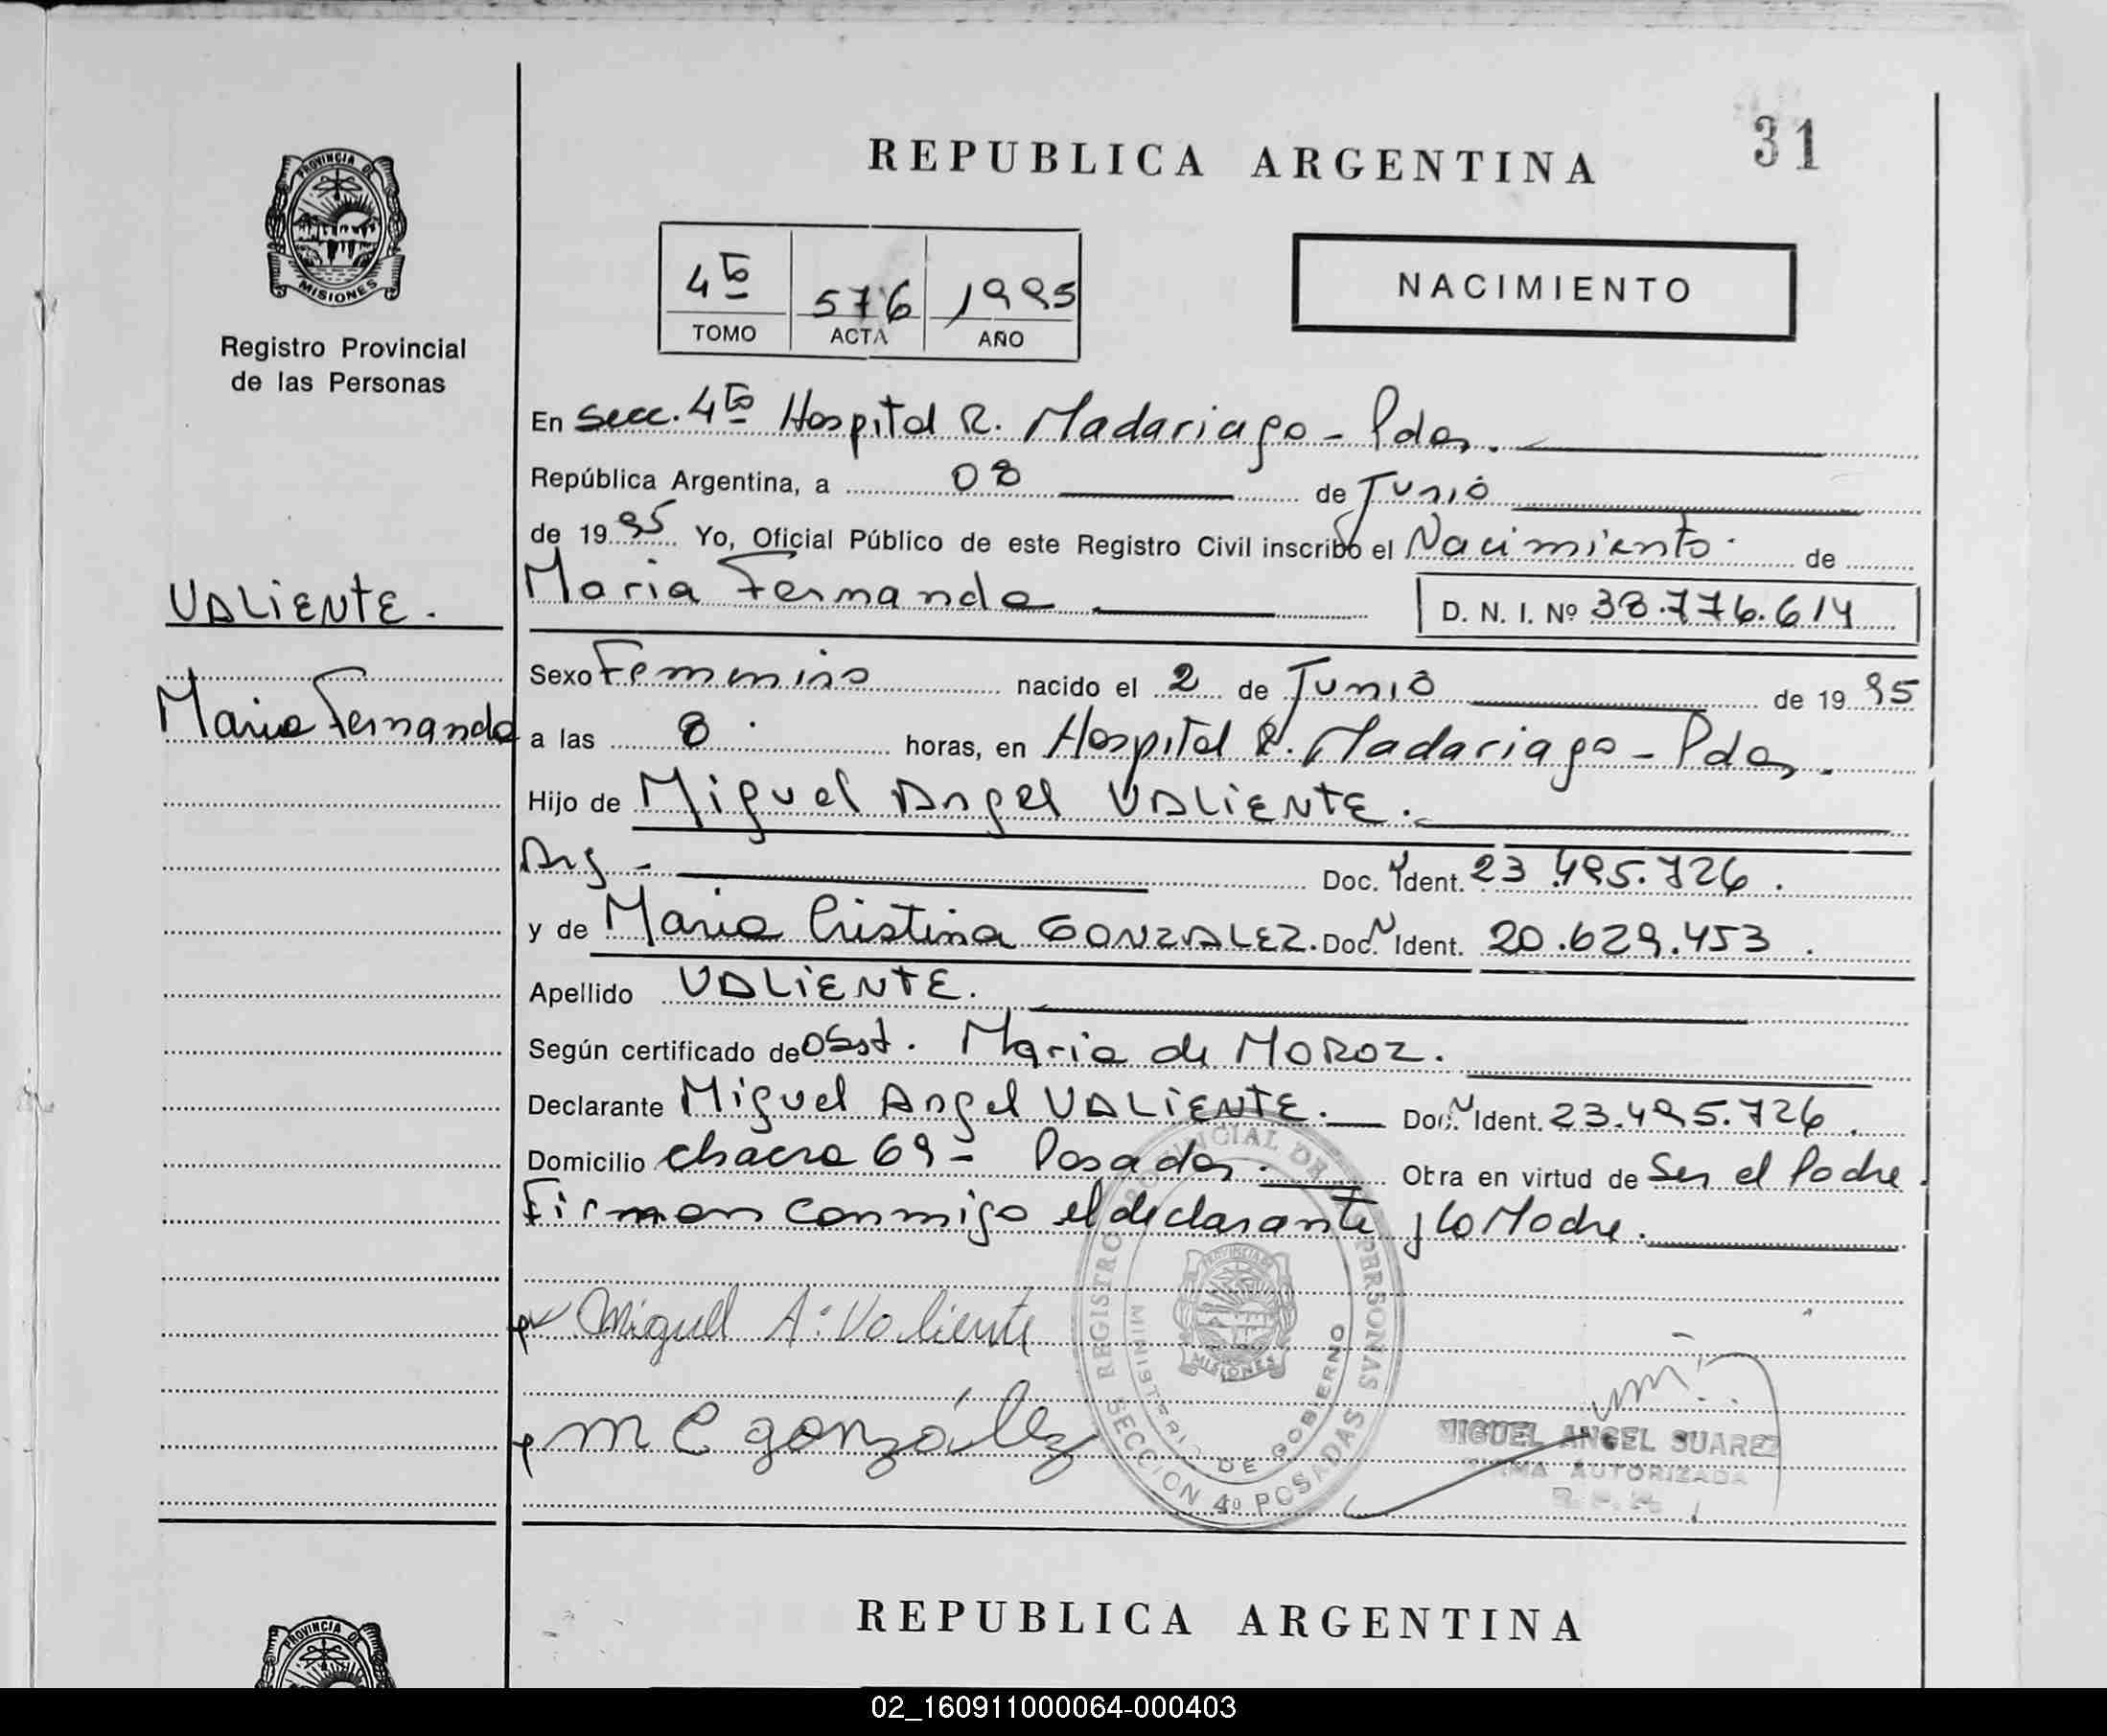 REPUBLICA ARGENTINA
31
PROVINCIA DE
MISIONES
Registro Provincial
de las Personas
4to 576 1995
TOMO ACTA AÑO
NACIMIENTO
En Secc. 4to Hospital R. Madariaga - Pdas.
República Argentina, a 08 de Junio
de 1995 Yo, Oficial Público de este Registro Civil inscribo el Nacimiento de
Maria Fernanda D. N. I. Nº 38.776.614
VALIENTE.
Maria Fernanda
Sexo Femenino nacido el 2 de Junio de 1995
a las 8 horas, en Hospital R. Madariaga - Pdas.
Hijo de Miguel Angel VALIENTE.
Arg - Doc. N Ident. 23.495.726.
y de Maria Cristina GONZALEZ. Doc. N Ident. 20.629.453.
Apellido VALIENTE.
Según certificado de Obst. Maria de MOROZ.
Declarante Miguel Angel VALIENTE. Doc. N Ident. 23.495.726.
Domicilio chacra 69 - Posadas. Obra en virtud de Ser el Padre.
Firman conmigo el declarante y la Madre.
Miguel A. Valiente
m C gonzález
REGISTRO PROVINCIAL DE LAS PERSONAS
MINISTERIO DE GOBIERNO
SECCION 4º POSADAS
PROVINCIA DE
MISIONES
MIGUEL ANGEL SUAREZ
FIRMA AUTORIZADA
REPUBLICA ARGENTINA
PROVINCIA DE
02_160911000064-000403